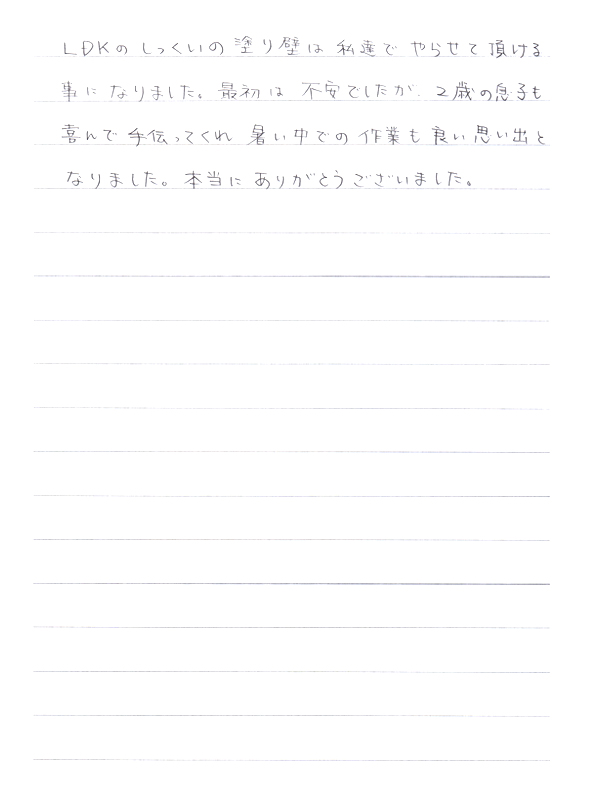 LDKの しっくいの 塗り壁は 私達で やらせて 頂ける
事に なりました。最初は 不安でしたが、2歳の息子も
喜んで 手伝ってくれ 暑い中での 作業も 良い思い出と
なりました。本当に ありがとうございました。